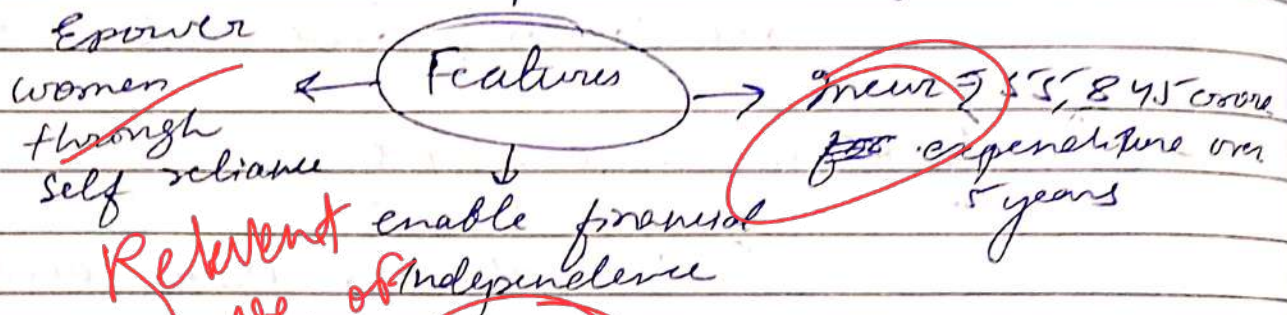 Epower
women
through
self reliance
← Features →
Incur ₹ 55,845 crore
expenditure over
5 years
↓
enable financial
Independence
Relevent
use of